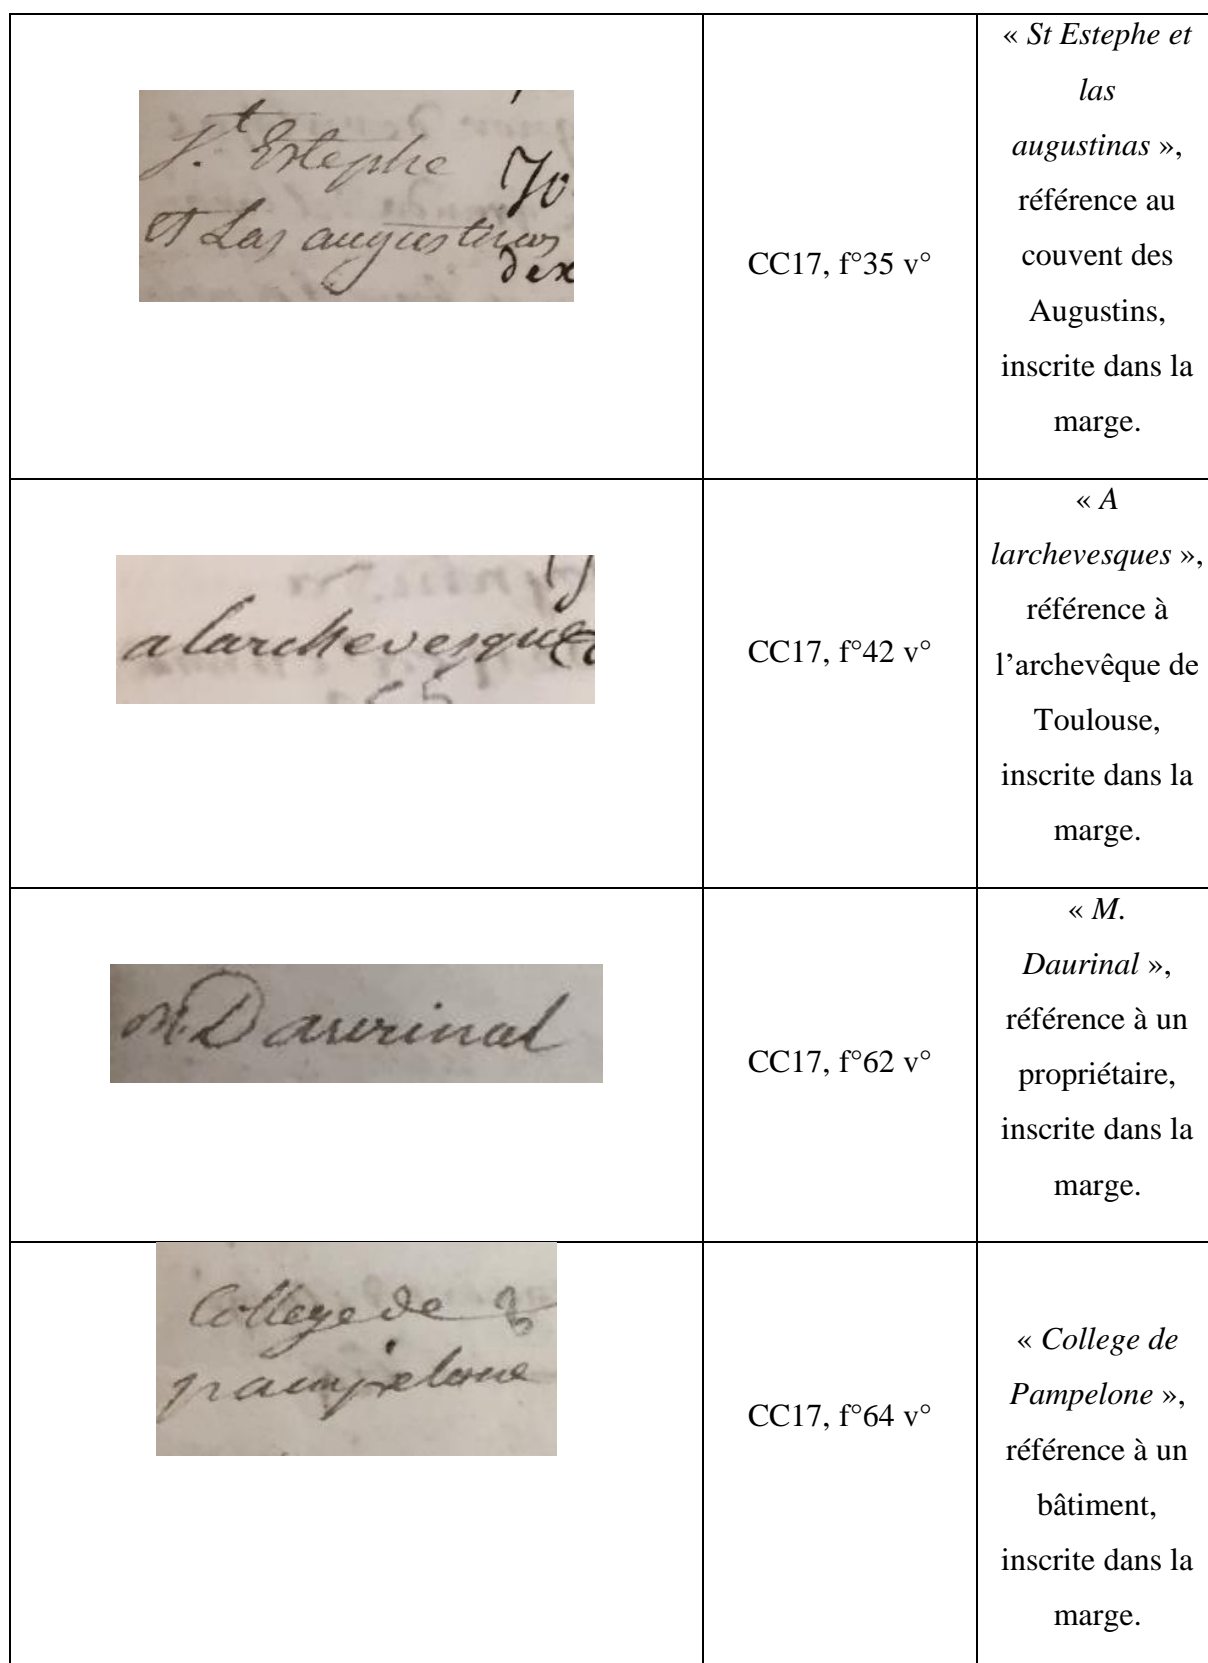 St Estephe
et Las augustinas
dex
CC17, f°35 v°
« St Estephe et
las
augustinas »,
référence au
couvent des
Augustins,
inscrite dans la
marge.
alarchevesques
CC17, f°42 v°
« A
larchevesques »,
référence à
l’archevêque de
Toulouse,
inscrite dans la
marge.
M. Daurinal
CC17, f°62 v°
« M.
Daurinal »,
référence à un
propriétaire,
inscrite dans la
marge.
College de
pampelone
CC17, f°64 v°
« College de
Pampelone »,
référence à un
bâtiment,
inscrite dans la
marge.